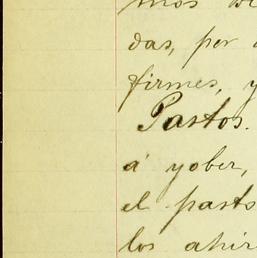 mos
das, por
firmes, y
Pastos.
á yober,
el pasto
los ahir